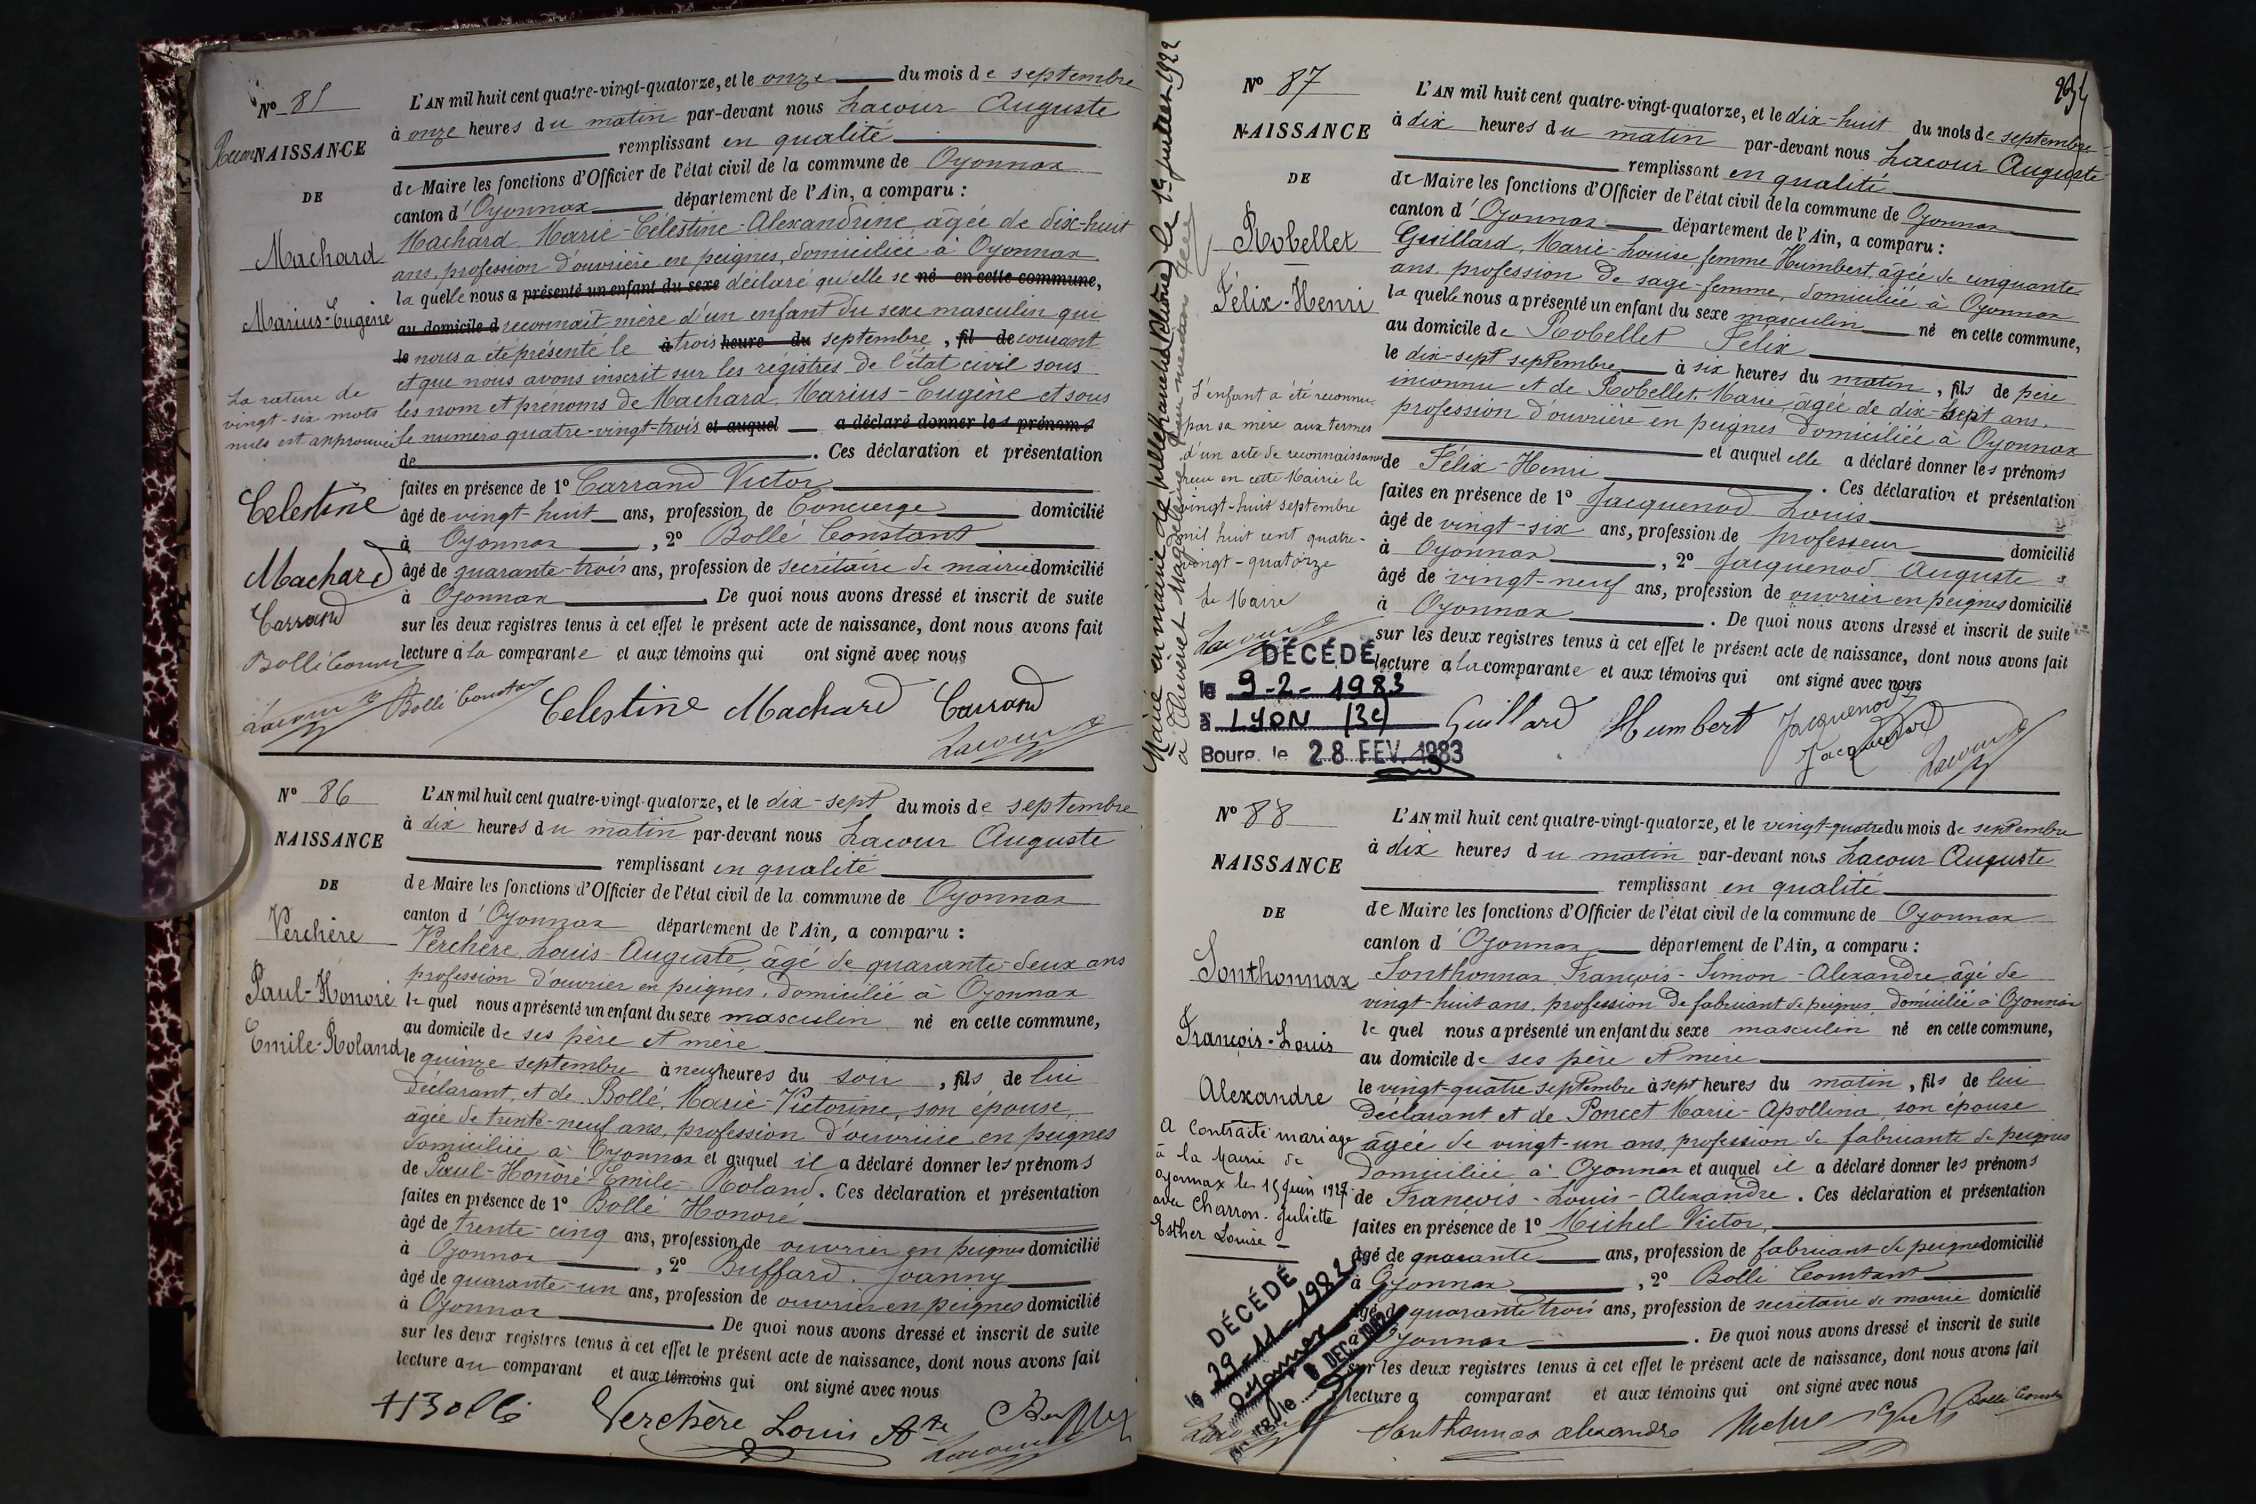 N° 85
Recon NAISSANCE
DE
Machard
Marius-Eugène
La rature de
vingt-six mots
nuls est approuvée
Celestine
Machard
Carrand
Bollé Constant
Lacour
L'AN mil huit cent quatre-vingt-quatorze, et le onze du mois de septembre
à onze heures du matin par-devant nous Lacour Auguste
remplissant en qualité
de Maire les fonctions d'Officier de l'état civil de la commune de Oyonnax
canton d'Oyonnax département de l'Ain, a comparu :
Machard Marie-Célestine-Alexandrine âgée de dix-huit
ans, profession d'ouvrière en peignes, domiciliée à Oyonnax
la quelle nous a présenté un enfant du sexe déclaré qu'elle se né en cette commune,
au domicile d reconnaît mère d'un enfant du sexe masculin qui
le nous a été présenté le à trois heure du septembre, fil de courant
et que nous avons inscrit sur les régistres de l'état civil sous
les nom et prénoms de Machard Marius-Eugène et sous
le numéro quatre-vingt-trois et auquel a déclaré donner les prénoms
de . Ces déclaration et présentation
faites en présence de 1° Carrand Victor
âgé de vingt-huit ans, profession de Concierge domicilié
à Oyonnax, 2° Bollé Constant
âgé de quarante-trois ans, profession de secrétaire de mairie domicilié
à Oyonnax. De quoi nous avons dressé et inscrit de suite
sur les deux registres tenus à cet effet le présent acte de naissance, dont nous avons fait
lecture à la comparante et aux témoins qui ont signé avec nous
Bollé Constant Celestine Machard Carrand
Lacour
N° 86
NAISSANCE
DE
Verchère
Paul-Honoré
Emile-Roland
L'AN mil huit cent quatre-vingt-quatorze, et le dix-sept du mois de septembre
à dix heures du matin par-devant nous Lacour Auguste
remplissant en qualité
de Maire les fonctions d'Officier de l'état civil de la commune de Oyonnax
canton d'Oyonnax département de l'Ain, a comparu :
Verchère Louis-Auguste, âgé de quarante-deux ans
profession d'ouvrier en peignes, domicilié à Oyonnax
le quel nous a présenté un enfant du sexe masculin né en cette commune,
au domicile de ses père et mère
le quinze septembre à neuf heures du soir, fils de lui
déclarant, et de Bollé, Marie-Victorine, son épouse,
âgée de trente-neuf ans, profession d'ouvrière en peignes
domiciliée à Oyonnax et auquel il a déclaré donner les prénoms
de Paul-Honoré-Emile-Roland. Ces déclaration et présentation
faites en présence de 1° Bollé Honoré
âgé de trente-cinq ans, profession de ouvrier en peignes domicilié
à Oyonnax, 2° Buffard, Joanny
âgé de quarante-un ans, profession de ouvrier en peignes domicilié
à Oyonnax. De quoi nous avons dressé et inscrit de suite
sur les deux registres tenus à cet effet le présent acte de naissance, dont nous avons fait
lecture au comparant et aux témoins qui ont signé avec nous
H Bollé Verchère Louis Ate
Lacour
234
N° 87
NAISSANCE
DE
Robellet
Félix-Henri
L'enfant a été reconnu
par sa mère aux termes
d'un acte de reconnaissance
reçu en cette Mairie le
vingt-huit septembre
mil huit cent quatre-
vingt-quatorze
Le Maire
Lacour
DÉCÉDÉ
le 9-2-1983
à LYON (3e)
Bourg, le 28 FEV. 1983
L'AN mil huit cent quatre-vingt-quatorze, et le dix-huit du mois de septembre
à dix heures du matin par-devant nous Lacour Auguste
remplissant en qualité
de Maire les fonctions d'Officier de l'état civil de la commune de Oyonnax
canton d'Oyonnax département de l'Ain, a comparu :
Guillard, Marie-Louise femme Humbert, âgée de cinquante
ans, profession de sage-femme, domiciliée à Oyonnax
la quelle nous a présenté un enfant du sexe masculin né en cette commune,
au domicile de Robellet Félix
le dix-sept septembre à six heures du matin, fils de père
inconnu et de Robellet, Marie, âgée de dix-sept ans,
profession d'ouvrière en peignes domiciliée à Oyonnax
et auquel elle a déclaré donner les prénoms
de Félix-Henri. Ces déclaration et présentation
faites en présence de 1° Jacquenod Louis
âgé de vingt-six ans, profession de professeur domicilié
à Oyonnax, 2° Jacquenod Auguste
âgé de vingt-neuf ans, profession de ouvrier en peignes domicilié
à Oyonnax. De quoi nous avons dressé et inscrit de suite
sur les deux registres tenus à cet effet le présent acte de naissance, dont nous avons fait
lecture à la comparante et aux témoins qui ont signé avec nous
Guillard Humbert Jacquenod
Jacquenod Lacour
N° 88
NAISSANCE
DE
Sonthonnax
François-Louis
Alexandre
A contracté mariage
à la Mairie de
Oyonnax le 15 Juin 1927
avec Charron Juliette
Esther Louise
DÉCÉDÉ
le 29-11-1982
à Oyonnax
8 DEC. 1982
Lacour
L'AN mil huit cent quatre-vingt-quatorze, et le vingt-quatre du mois de septembre
à dix heures du matin par-devant nous Lacour Auguste
remplissant en qualité
de Maire les fonctions d'Officier de l'état civil de la commune de Oyonnax
canton d'Oyonnax département de l'Ain, a comparu :
Sonthonnax François-Simon-Alexandre âgé de
vingt-huit ans, profession de fabricant de peignes, domicilié à Oyonnax
le quel nous a présenté un enfant du sexe masculin né en cette commune,
au domicile de ses père et mère
le vingt-quatre septembre à sept heures du matin, fils de lui
déclarant et de Poncet Marie-Apollina, son épouse
âgée de vingt-un ans, profession de fabricante de peignes
domiciliée à Oyonnax et auquel il a déclaré donner les prénoms
de François-Louis-Alexandre. Ces déclaration et présentation
faites en présence de 1° Michel Victor,
âgé de quarante ans, profession de fabricant de peignes domicilié
à Oyonnax, 2° Bollé Constant
âgé de quarante trois ans, profession de secrétaire de mairie domicilié
Oyonnax. De quoi nous avons dressé et inscrit de suite
sur les deux registres tenus à cet effet le présent acte de naissance, dont nous avons fait
lecture a comparant et aux témoins qui ont signé avec nous
Sonthonnax alexandre Michel Bollé Const